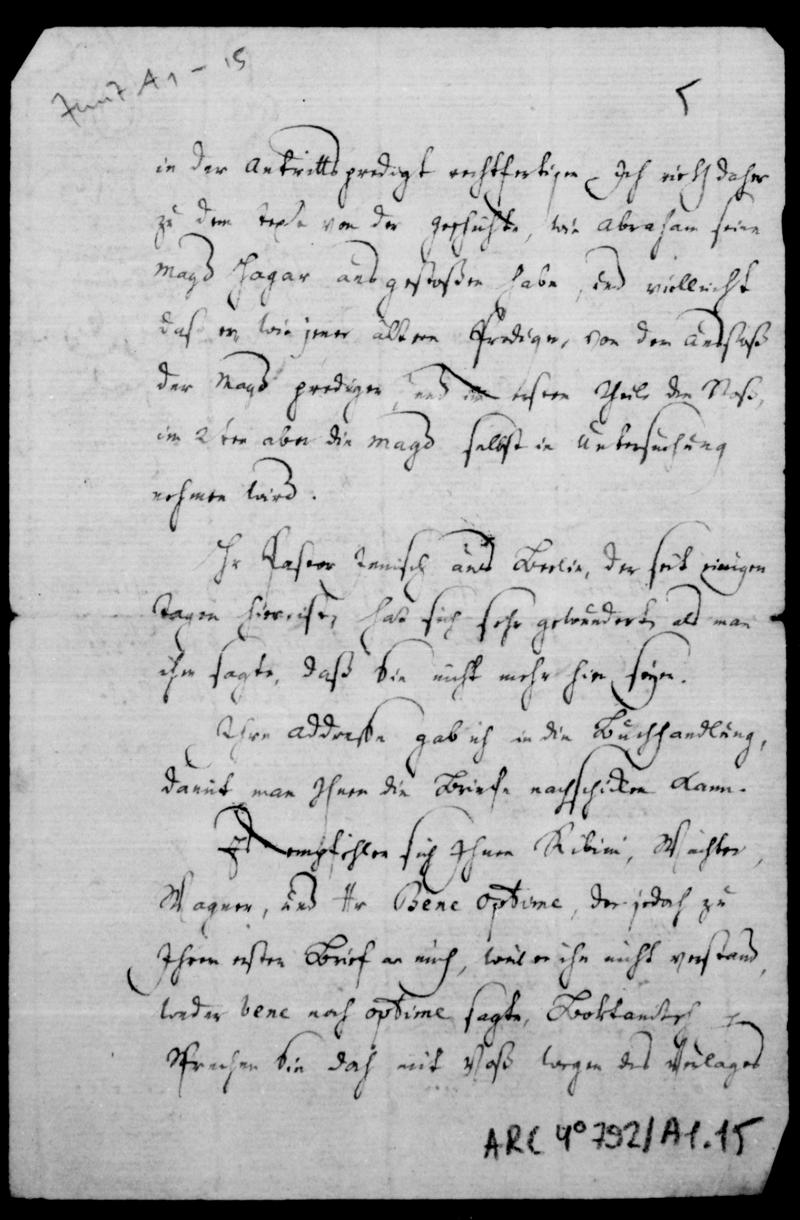 A1 - 15
5
in der Antrittspredigt rechtfertigen. Ich rieth daher
zu dem Texte von der Geschichte, wie Abraham seine
Magd Hagar ausgestoßen habe, und vielleicht
daß er, wie jener ältere Prediger, von dem Ausstoß
der Magd predigen, und im ersten Theile den Stoß,
im 2ten aber die Magd selbst in Untersuchung
nehmen wird.
Hr Pastor Jenisch aus Berlin, der seit einigen
Tagen hier ist, hat sich sehr gewundert, als man
ihm sagte, daß Sie nicht mehr hier seyen.
Ihre Addresse gab ich in die Buchhandlung,
damit man Ihnen die Briefe nachschicken kann.
Es empfehlen sich Ihnen Ribini, Wächter,
Wagner, und Hr Bene optime, der jedoch zu
Ihrem ersten Brief an mich, weil er ihn nicht verstand,
weder bene noch optime sagte,
Sprechen Sie doch mit Voß wegen des Verlages
ARC 4° 792/A1.15